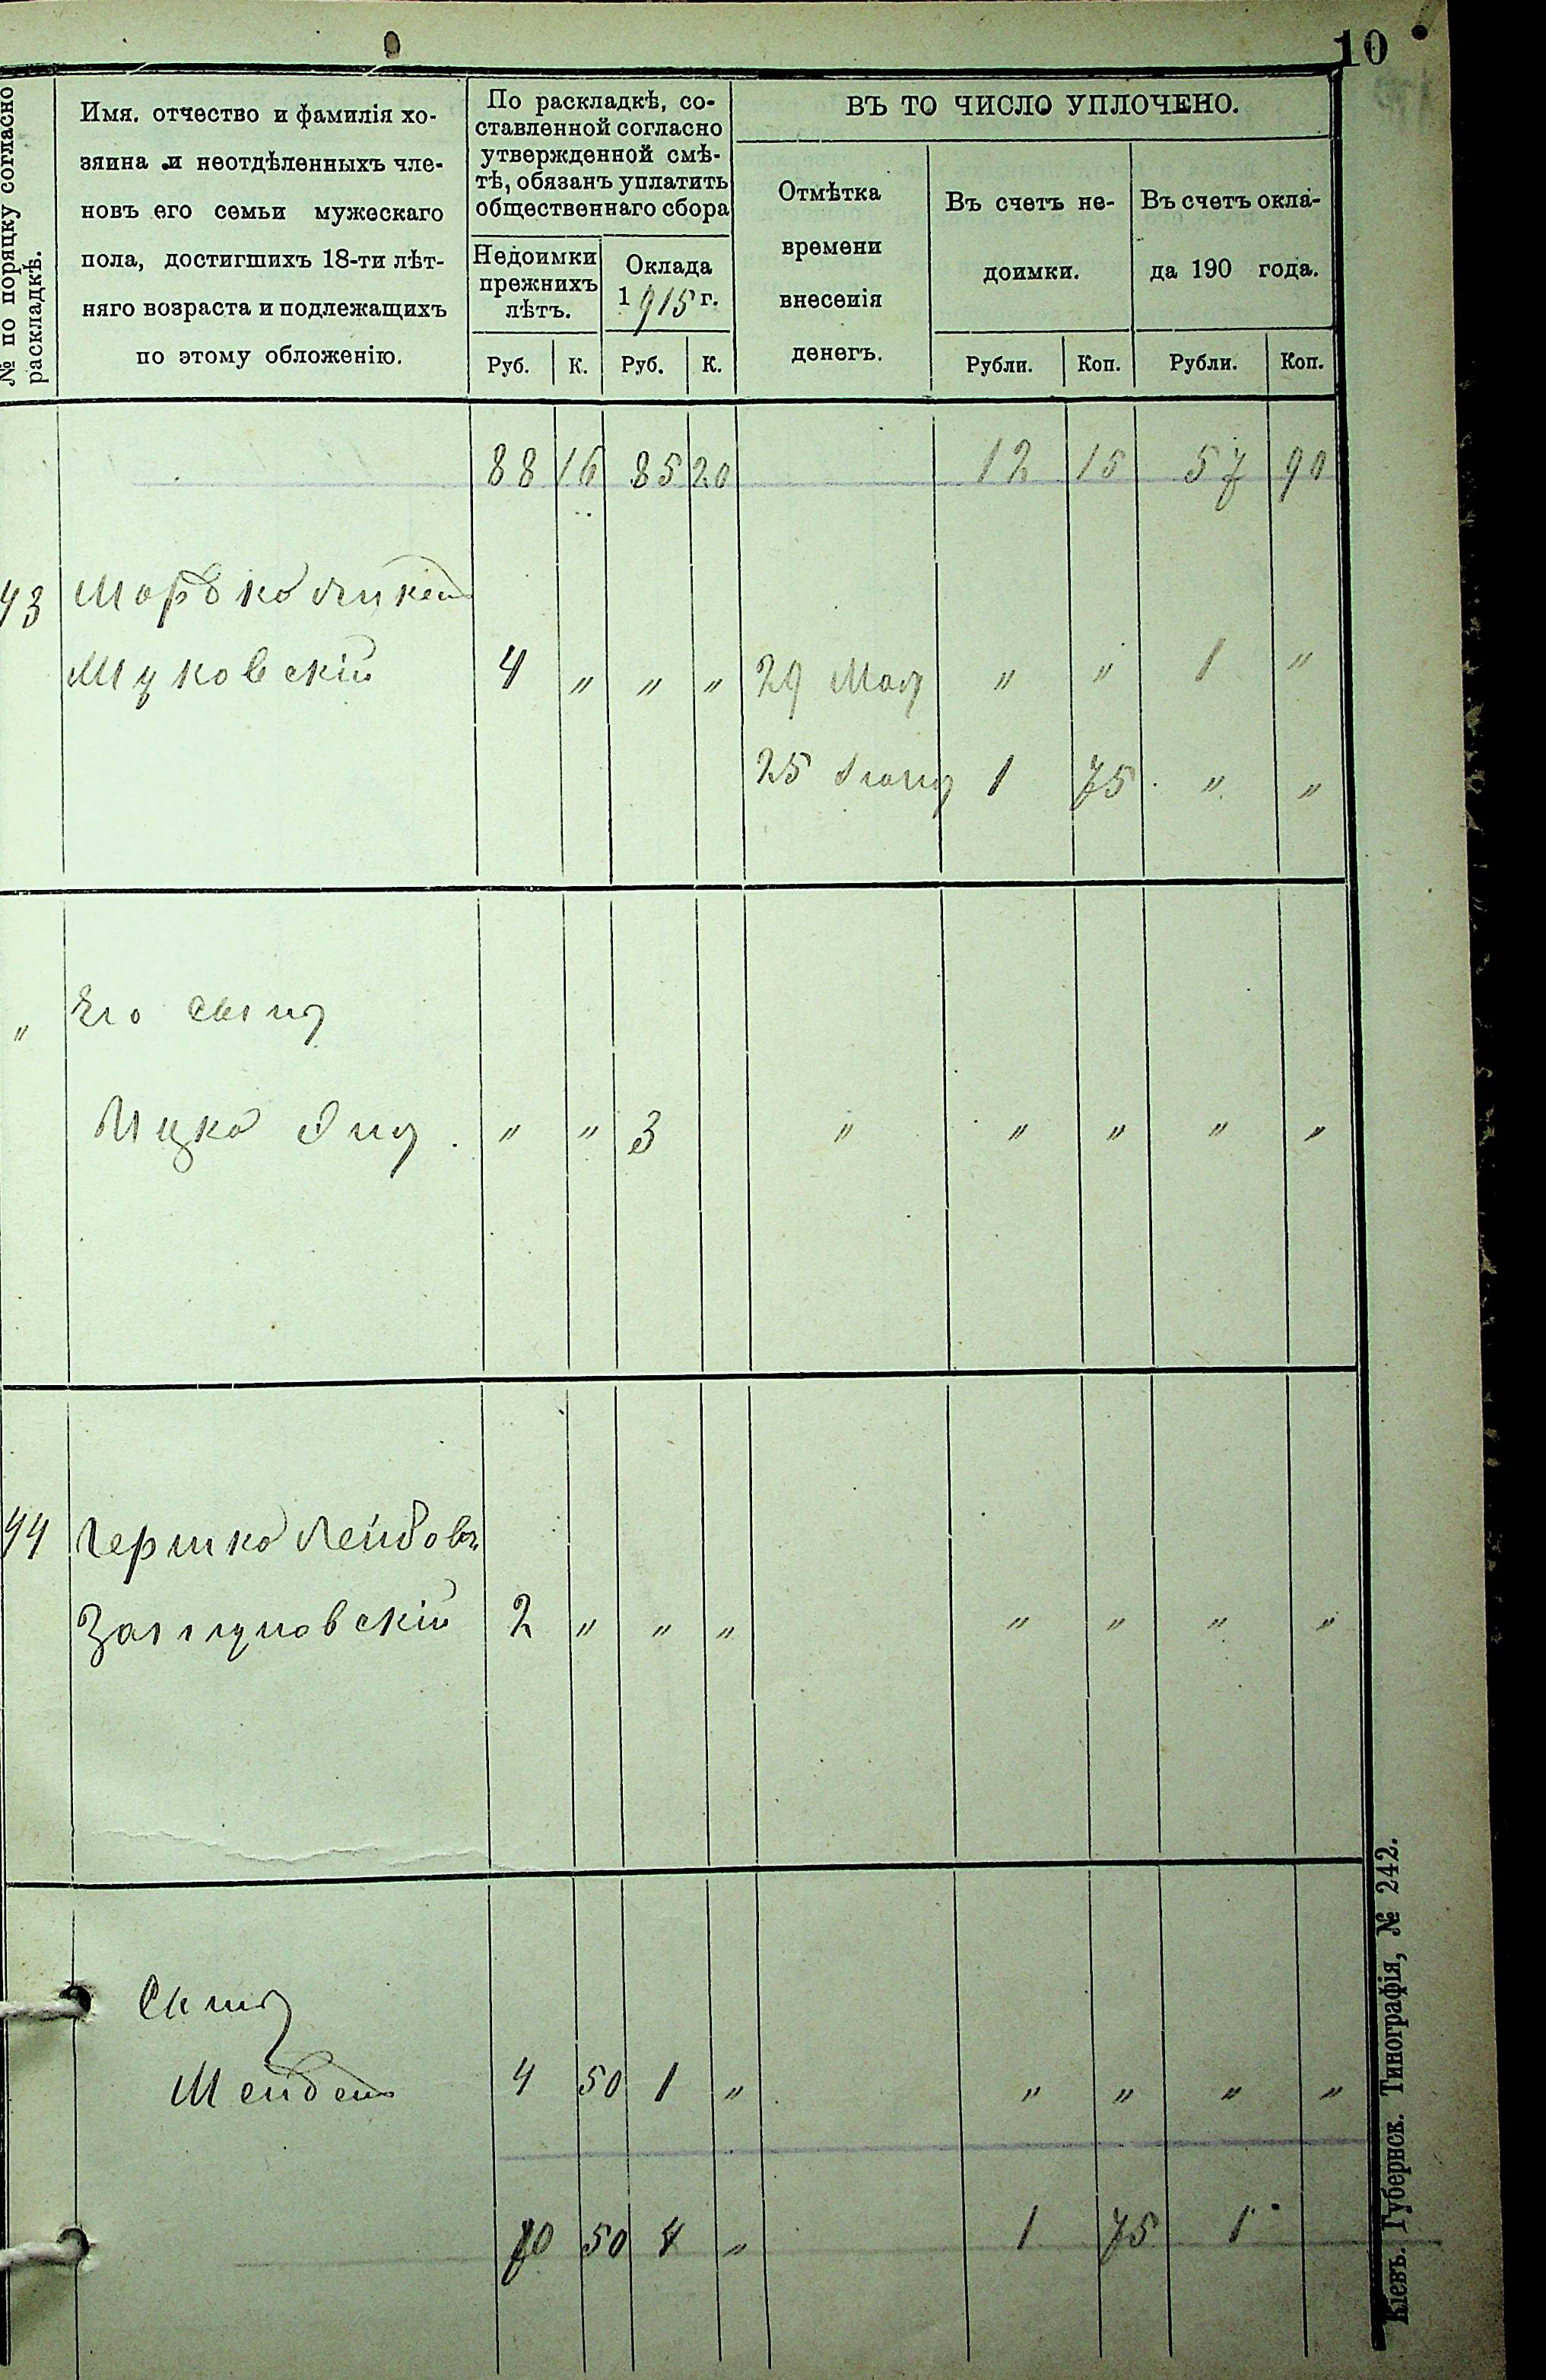 10
№ по поряцку согласно
раскладкѣ.
Имя, отчество и фамилія хо-
зяина и неотдѣленныхъ чле-
новъ его семьи мужескаго
пола, достигшихъ 18-ти лѣт-
няго возраста и подлежащихъ
по этому обложенію.
По раскладкѣ, со-
ставленной согласно
утвержденной смѣ-
тѣ, обязанъ уплатить
общественнаго сбора
Недоимки
прежнихъ
лѣтъ.
Оклада
1915 г.
Руб. К. Руб. К.
ВЪ ТО ЧИСЛО УПЛОЧЕНО.
Отмѣтка
времени
внесенія
денегъ.
Въ счетъ не-
доимки.
Рубли. Коп.
Въ счетъ окла-
да 190 года.
Рубли. Коп.
88 16 85 20 12 15 57 90
43
4 " " " 29 Мая " " 1 "
25 1 75 " "
" Его сынъ
Ицко " " 3 " " " " "
44 Гершко Лейбов
2 " " " " " " "
Сынъ
4 50 1 " " " " "
10 50 4 " 1 75 1
Кіевъ. Губернск. Типографія, № 242.